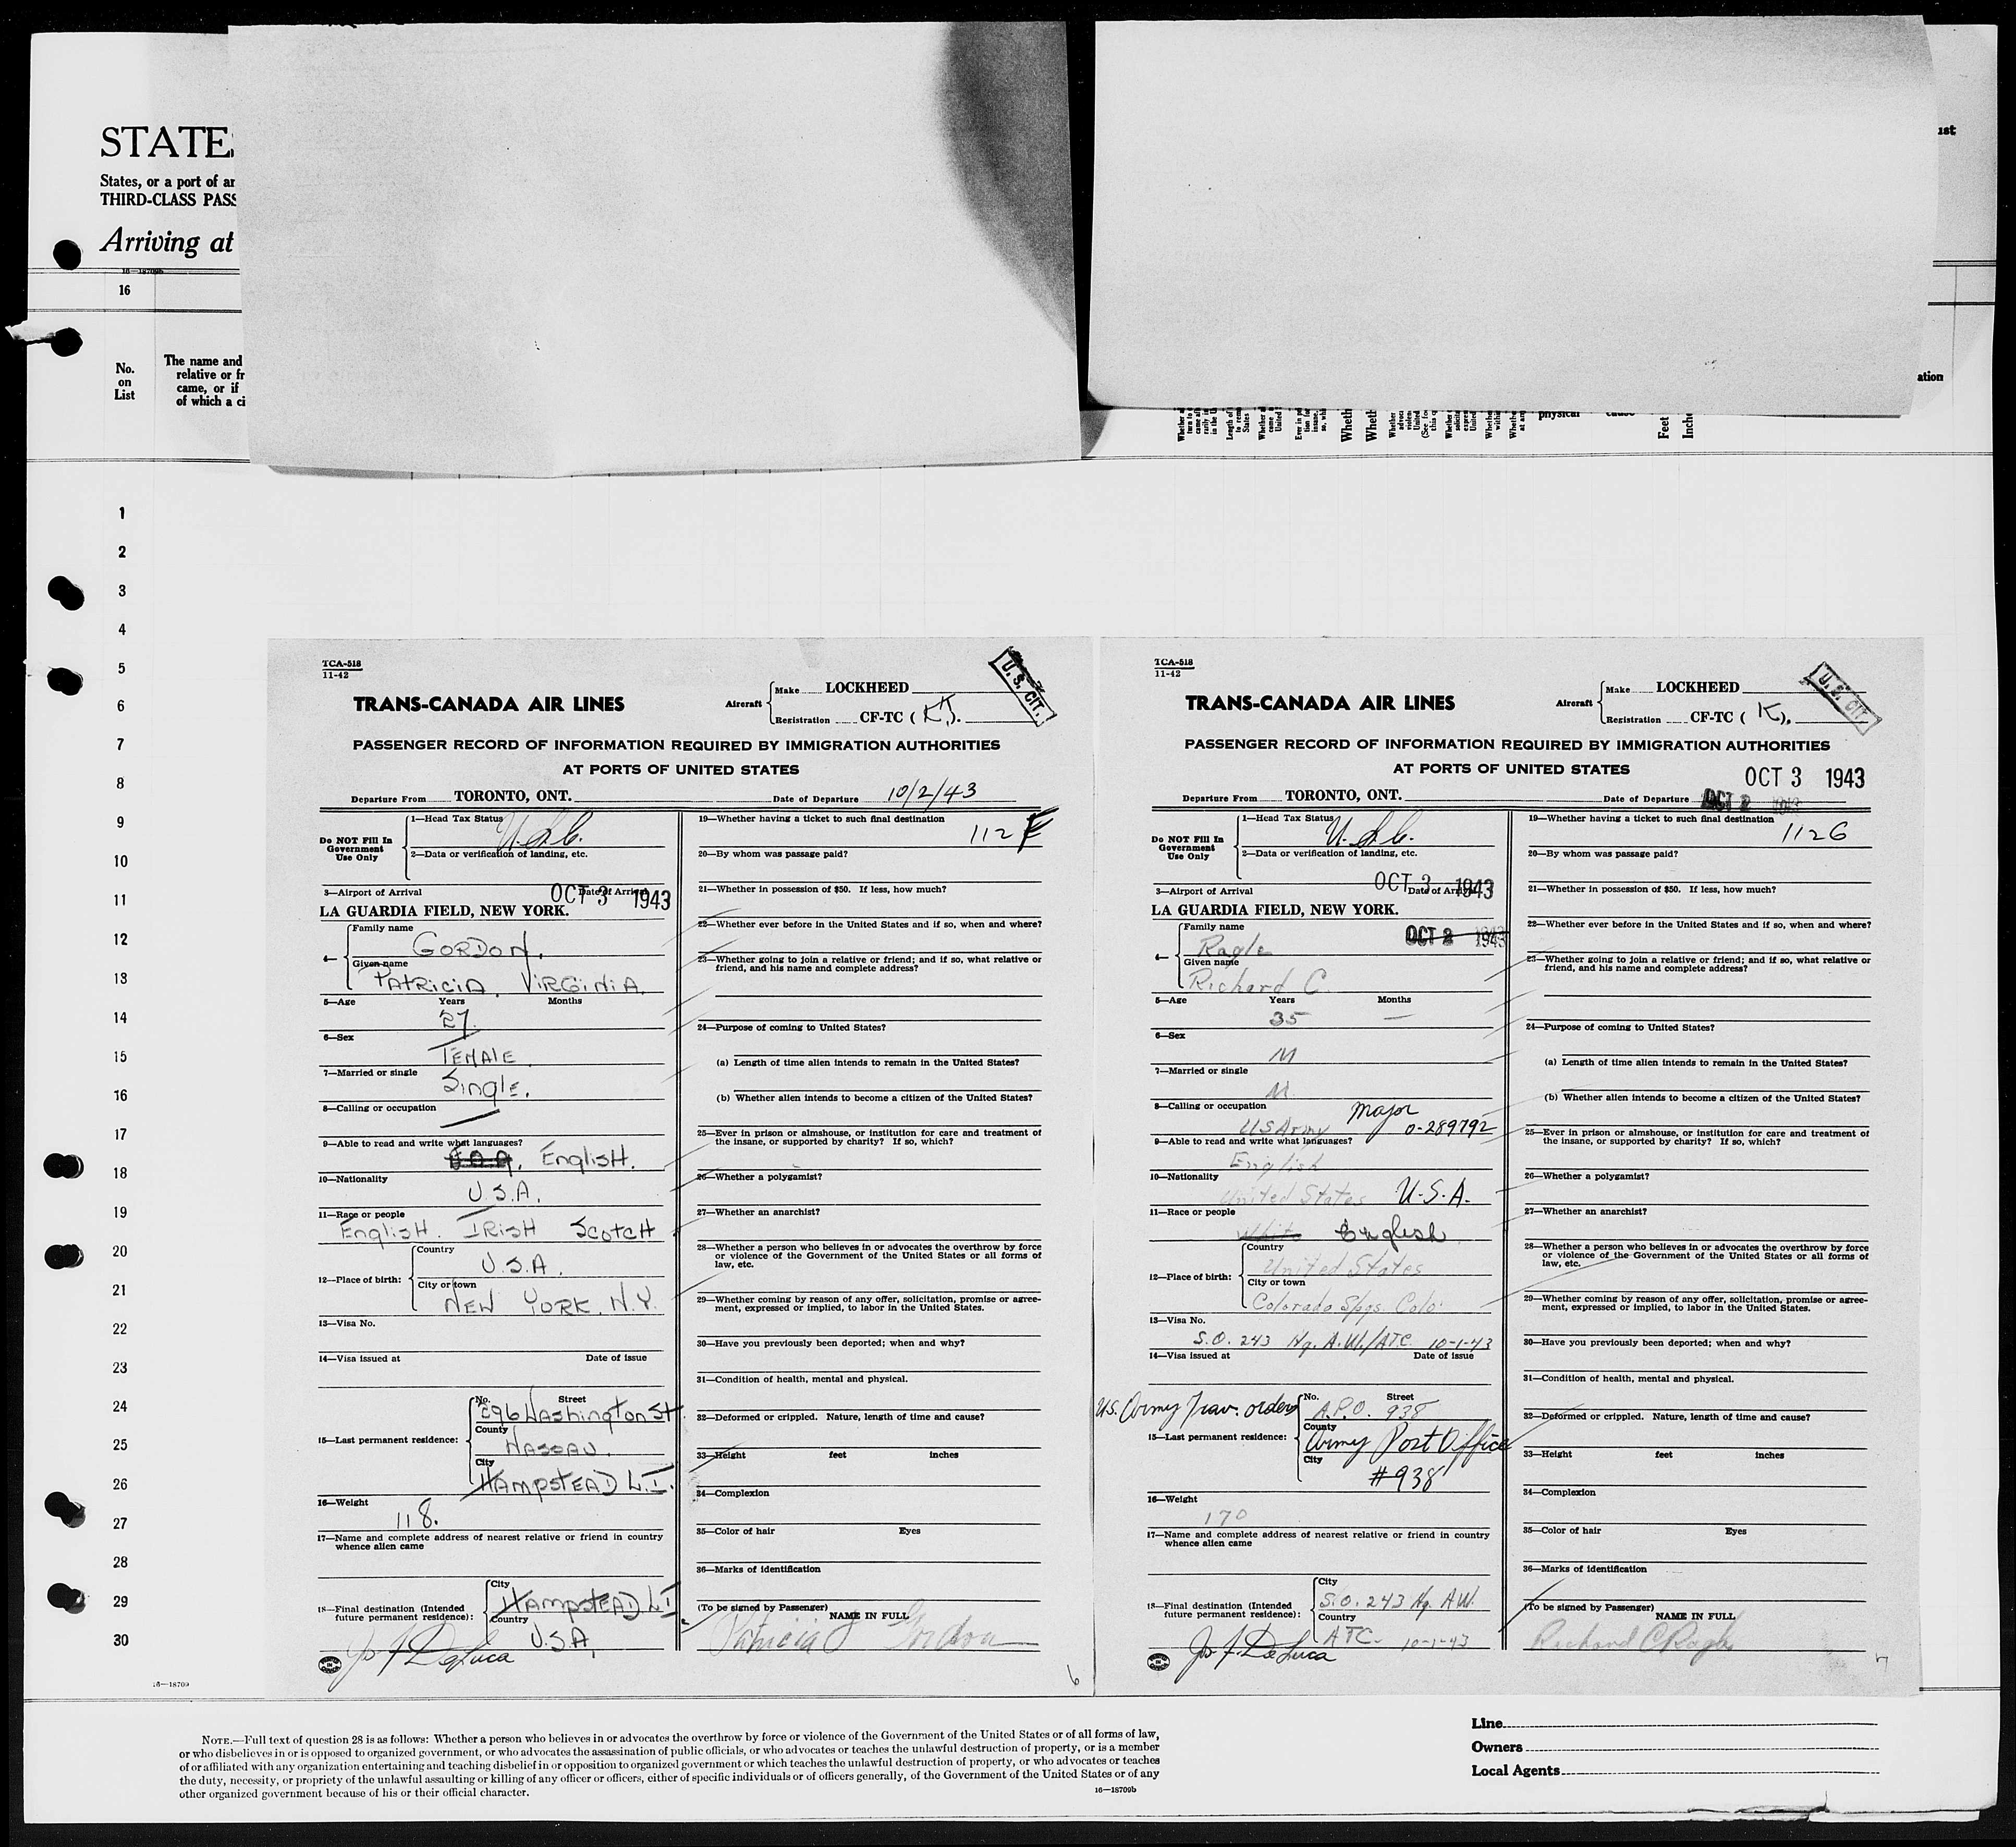 STATES
States, or a port of an
THIRD-CLASS PASS
Arriving at
16—18709b
16
No.
on
List
The name and
relative or fr
came, or if
of which a ci
ust
ation
physical
cause
Feet
Inche
1
2
3
4
5
6
7
8
9
10
11
12
13
14
15
16
17
18
19
20
21
22
23
24
25
26
27
28
29
30
16—18709
TCA-518
11-42
U. S. CIT.
TRANS-CANADA AIR LINES
Aircraft
Make LOCKHEED
Registration CF-TC ( K ).
PASSENGER RECORD OF INFORMATION REQUIRED BY IMMIGRATION AUTHORITIES
AT PORTS OF UNITED STATES
Departure From TORONTO, ONT. Date of Departure 10/2/43
Do NOT Fill In
Government
Use Only
1—Head Tax Status
2—Data or verification of landing, etc.
3—Airport of Arrival Date of Arrival
OCT 3 1943
LA GUARDIA FIELD, NEW YORK.
4—
Family name
GORDON.
Given name
PATRICIA. VIRGINIA.
5—Age Years Months
27.
6—Sex
FEMALE
7—Married or single
Single.
8—Calling or occupation
9—Able to read and write what languages?
English.
10—Nationality
U.S.A.
11—Race or people
English. IRISH SCOTCH
12—Place of birth:
Country
U.S.A.
City or town
NEW YORK. N.Y.
13—Visa No.
14—Visa issued at Date of issue
15—Last permanent residence:
No. Street
296 Washington St
County
NASSAU.
City
HAMPSTEAD L.I.
16—Weight
118.
17—Name and complete address of nearest relative or friend in country
whence alien came
18—Final destination (Intended
future permanent residence):
City
HAMPSTEAD L I
Country
U.S.A.
Jos J. DeLuca
19—Whether having a ticket to such final destination
112 F
20—By whom was passage paid?
21—Whether in possession of $50. If less, how much?
22—Whether ever before in the United States and if so, when and where?
23—Whether going to join a relative or friend; and if so, what relative or
friend, and his name and complete address?
24—Purpose of coming to United States?
(a) Length of time alien intends to remain in the United States?
(b) Whether alien intends to become a citizen of the United States?
25—Ever in prison or almshouse, or institution for care and treatment of
the insane, or supported by charity? If so, which?
26—Whether a polygamist?
27—Whether an anarchist?
28—Whether a person who believes in or advocates the overthrow by force
or violence of the Government of the United States or all forms of
law, etc.
29—Whether coming by reason of any offer, solicitation, promise or agree-
ment, expressed or implied, to labor in the United States.
30—Have you previously been deported; when and why?
31—Condition of health, mental and physical.
32—Deformed or crippled. Nature, length of time and cause?
33—Height feet inches
34—Complexion
35—Color of hair Eyes
36—Marks of identification
(To be signed by Passenger) NAME IN FULL
Patricia Gordon
6
TCA-518
11-42
U. S. CIT.
TRANS-CANADA AIR LINES
Aircraft
Make LOCKHEED
Registration CF-TC ( K ).
PASSENGER RECORD OF INFORMATION REQUIRED BY IMMIGRATION AUTHORITIES
AT PORTS OF UNITED STATES
OCT 3 1943
Departure From TORONTO, ONT. Date of Departure OCT 2 1943
Do NOT Fill In
Government
Use Only
1—Head Tax Status
2—Data or verification of landing, etc.
3—Airport of Arrival Date of Arrival
OCT 3 1943
LA GUARDIA FIELD, NEW YORK.
OCT 2 1943
4—
Family name
Ragle
Given name
Richard C.
5—Age Years Months
35 —
6—Sex
M
7—Married or single
M
8—Calling or occupation
US Army Major 0-289792
9—Able to read and write what languages?
English
10—Nationality
United States U.S.A.
11—Race or people
White English
12—Place of birth:
Country
United States
City or town
Colorado Spgs. Colo.
13—Visa No.
S.O. 243 Hq. A.W./ATC 10-1-43
14—Visa issued at Date of issue
U.S. Army Trav. orders
15—Last permanent residence:
No. Street
A.P.O. 938
County
Army Post Office
City
#938
16—Weight
170
17—Name and complete address of nearest relative or friend in country
whence alien came
18—Final destination (Intended
future permanent residence):
City
S.O. 243 Hq. A.W.
Country
ATC. 10-1-43
Jos J. DeLuca
19—Whether having a ticket to such final destination
112 G
20—By whom was passage paid?
21—Whether in possession of $50. If less, how much?
22—Whether ever before in the United States and if so, when and where?
23—Whether going to join a relative or friend; and if so, what relative or
friend, and his name and complete address?
24—Purpose of coming to United States?
(a) Length of time alien intends to remain in the United States?
(b) Whether alien intends to become a citizen of the United States?
25—Ever in prison or almshouse, or institution for care and treatment of
the insane, or supported by charity? If so, which?
26—Whether a polygamist?
27—Whether an anarchist?
28—Whether a person who believes in or advocates the overthrow by force
or violence of the Government of the United States or all forms of
law, etc.
29—Whether coming by reason of any offer, solicitation, promise or agree-
ment, expressed or implied, to labor in the United States.
30—Have you previously been deported; when and why?
31—Condition of health, mental and physical.
32—Deformed or crippled. Nature, length of time and cause?
33—Height feet inches
34—Complexion
35—Color of hair Eyes
36—Marks of identification
(To be signed by Passenger) NAME IN FULL
Richard C Ragle
7
NOTE.—Full text of question 28 is as follows: Whether a person who believes in or advocates the overthrow by force or violence of the Government of the United States or of all forms of law,
or who disbelieves in or is opposed to organized government, or who advocates the assassination of public officials, or who advocates or teaches the unlawful destruction of property, or is a member
of or affiliated with any organization entertaining and teaching disbelief in or opposition to organized government or which teaches the unlawful destruction of property, or who advocates or teaches
the duty, necessity, or propriety of the unlawful assaulting or killing of any officer or officers, either of specific individuals or of officers generally, of the Government of the United States or of any
other organized government because of his or their official character.
16—18709b
Line
Owners
Local Agents